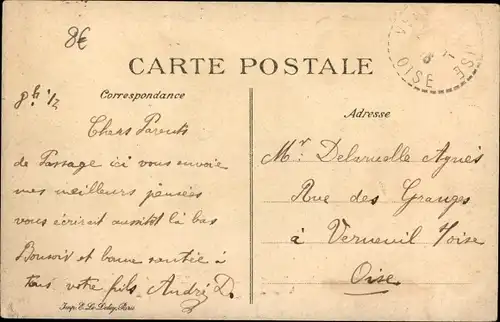 8€
CARTE POSTALE
Correspondance
Adresse
8h 1/2
Chers Parents
de Passage ici vous envoie
mes meilleurs pensées
vous écrirai aussitôt là bas
Bonsoir et bonne santée à
tous votre fils André D.
Mr. Delaruelle Agnès
Rue des Granges
à Verneuil s/oise
Oise
OISE
Imp. E. Le Deley, Paris